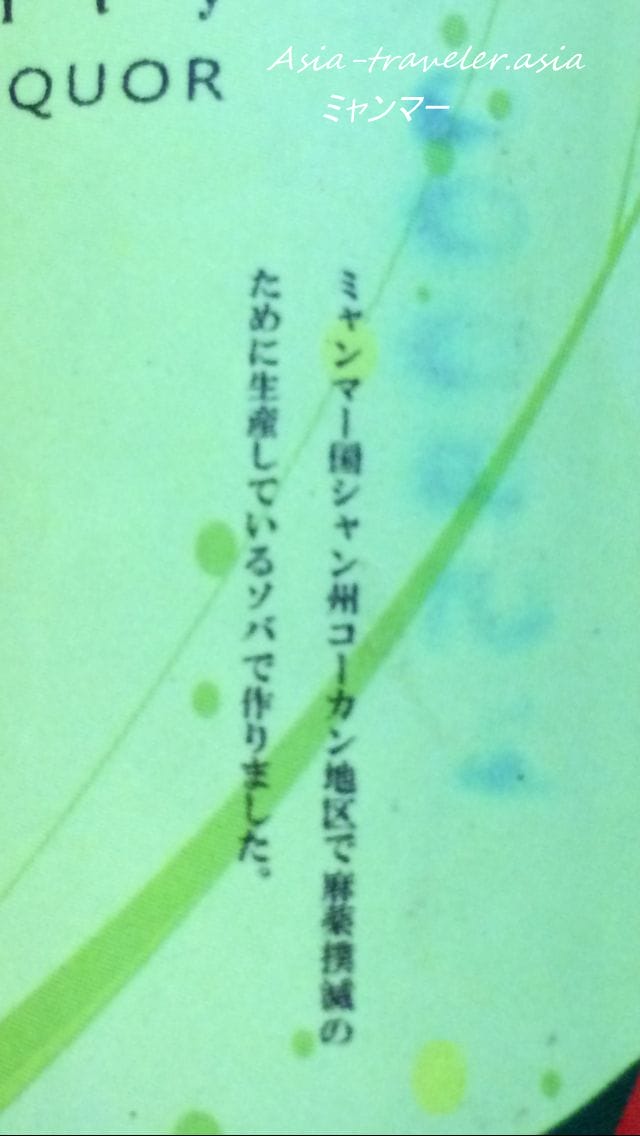 QUOR
Asia-traveler.asia
ミャンマー
ミャンマー国シャン州コーカン地区で麻薬撲滅の
ために生産しているソバで作りました。